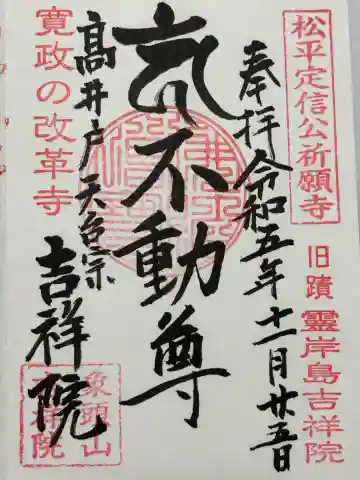 松平定信公祈願寺
旧蹟 霊岸島吉祥院
奉拝 令和五年十一月廿五日
不動尊
髙井戸 天台宗
吉祥院
寛政の改革寺
象頭山
吉祥院